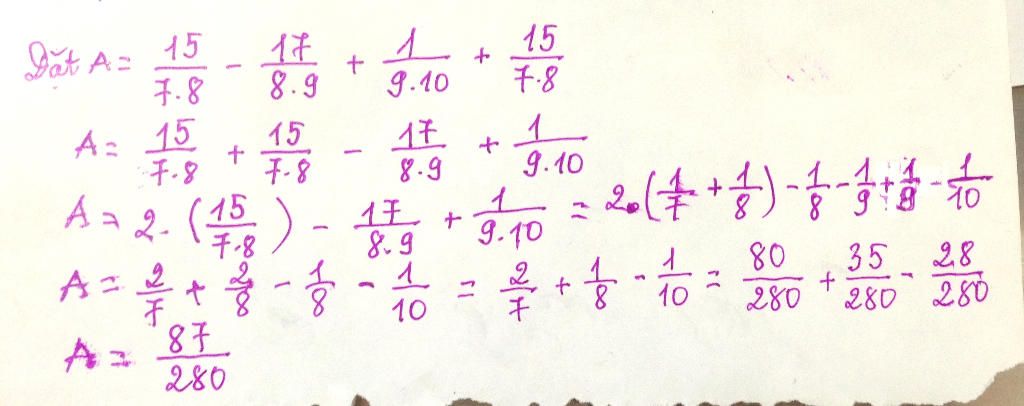 Đặt A = 15/7.8 - 17/8.9 + 1/9.10 + 15/7.8
A = 15/7.8 + 15/7.8 - 17/8.9 + 1/9.10
A = 2. (15/7.8) - 17/8.9 + 1/9.10 = 2.(1/7 + 1/8) - 1/8 - 1/9 + 1/9 - 1/10
A = 2/7 + 2/8 - 1/8 - 1/10 = 2/7 + 1/8 - 1/10 = 80/280 + 35/280 - 28/280
A = 87/280